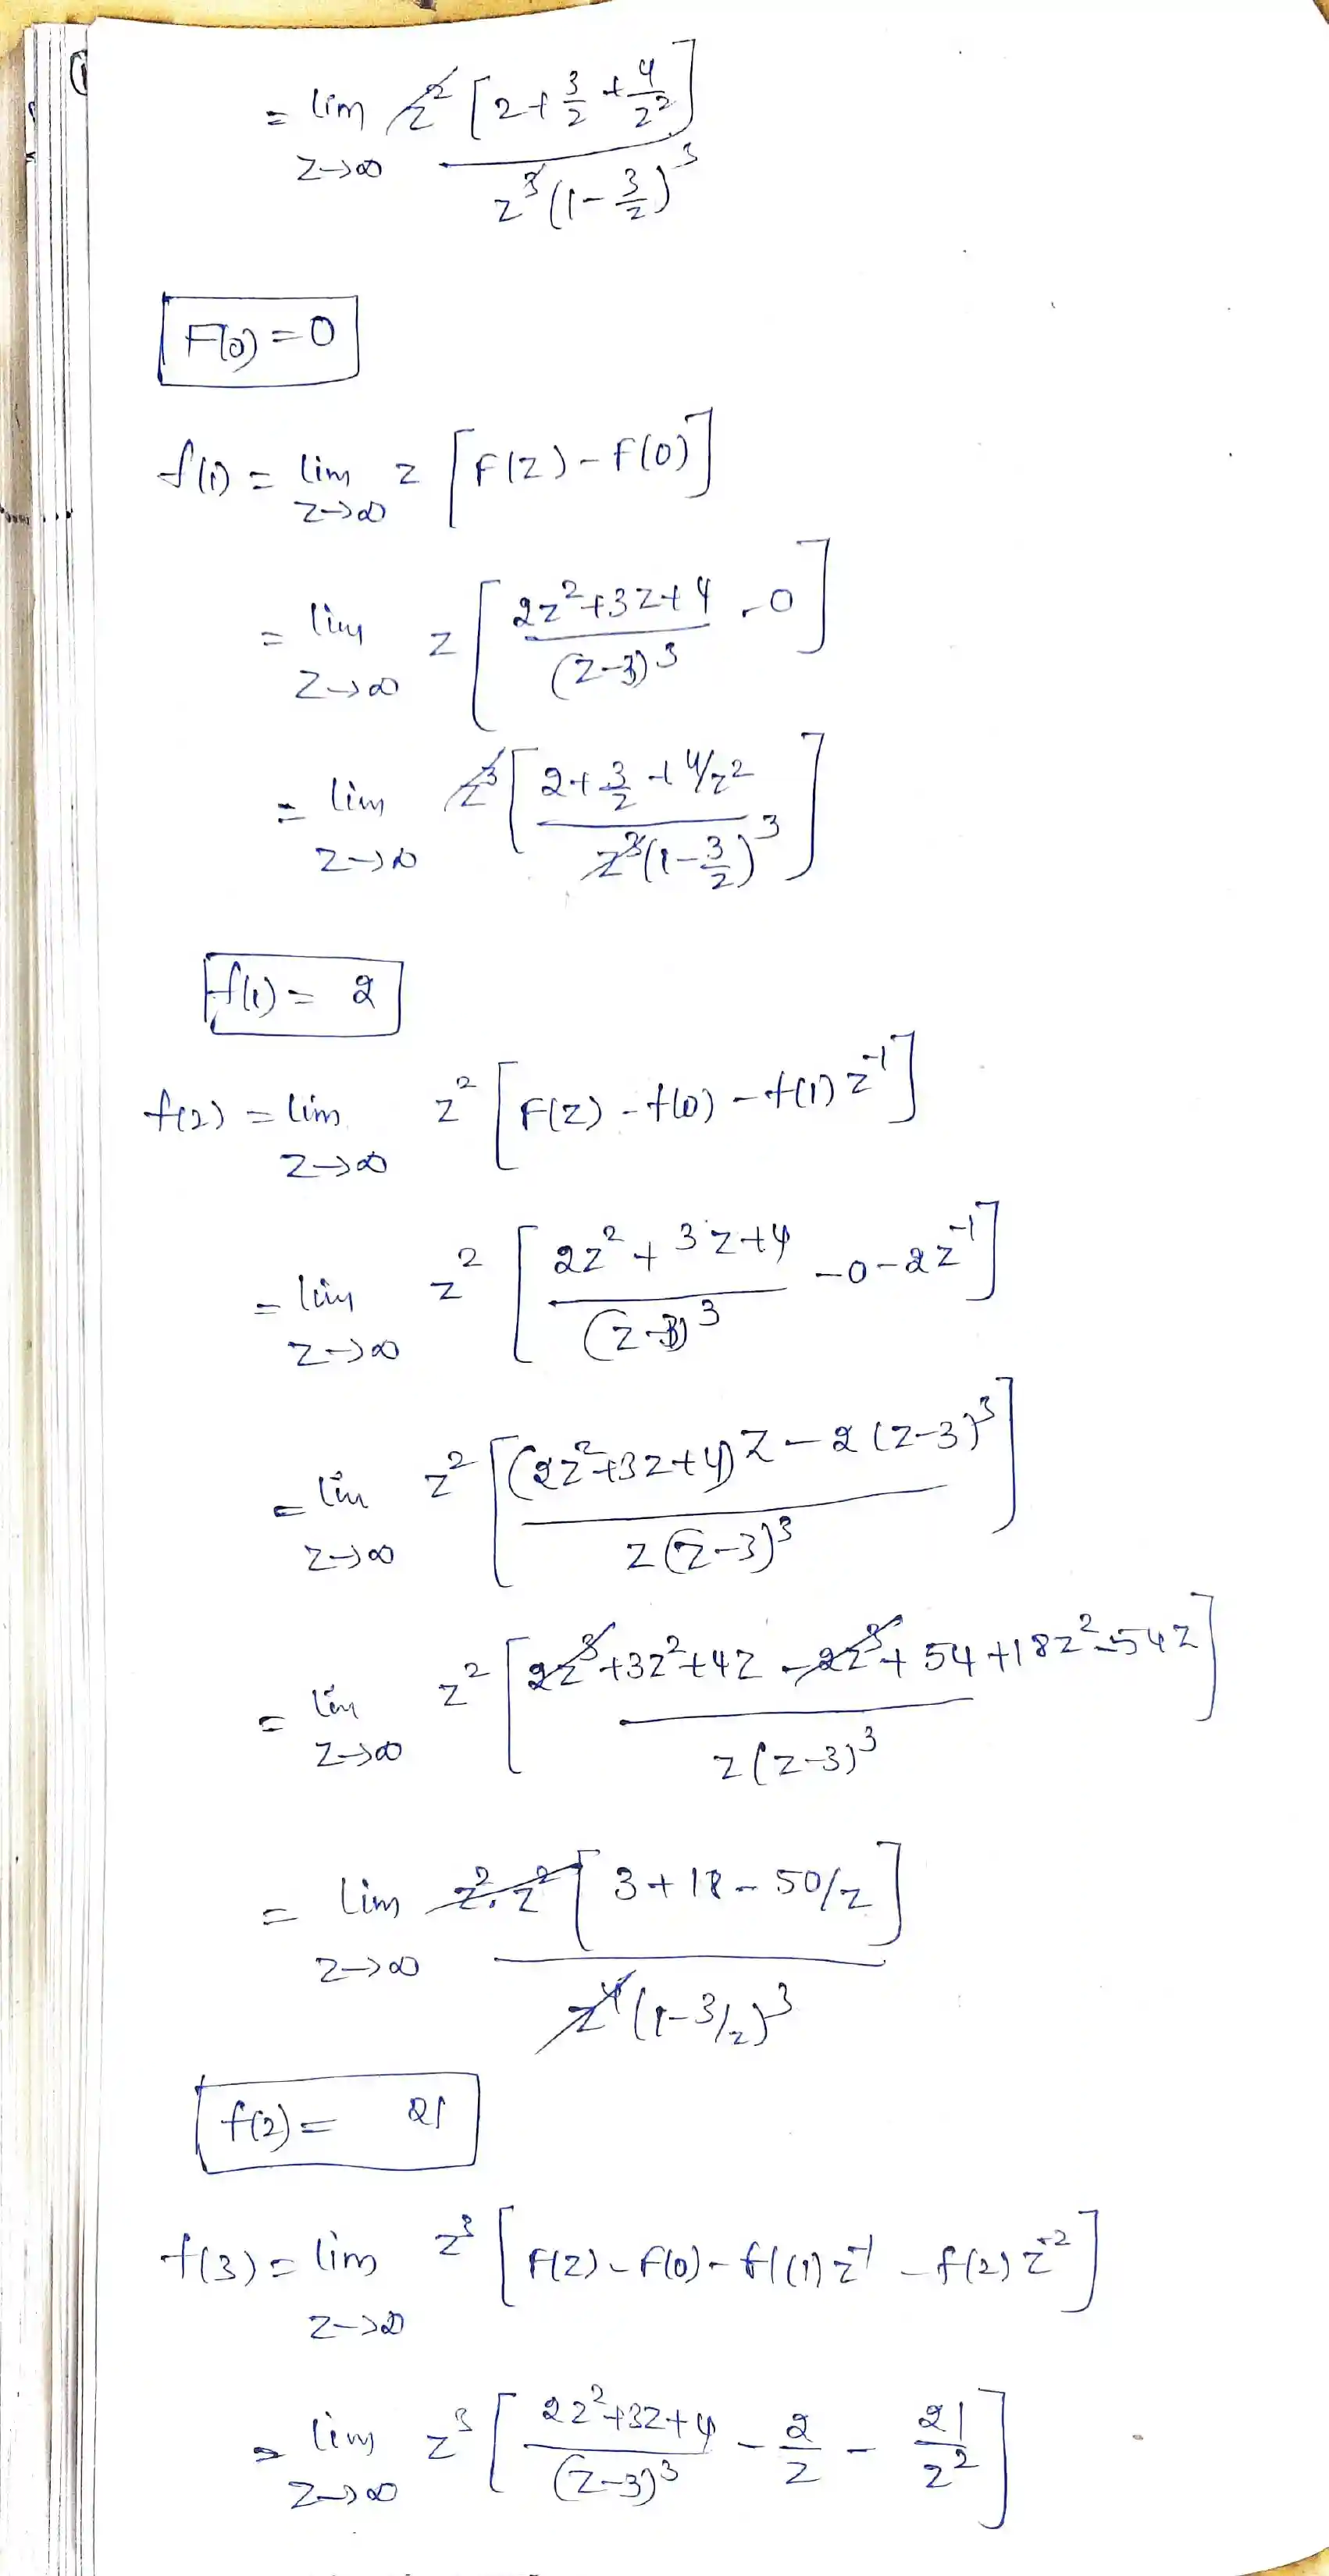 = lim z² [2 + 3/z + 4/z²]
z→∞ z³ (1 - 3/z)³
F(0) = 0
f(1) = lim z [F(z) - f(0)]
z→∞
= lim z [(2z² + 3z + 4)/(z-3)³ - 0]
z→∞
= lim z³ [(2 + 3/z + 4/z²)/(z³(1 - 3/z)³)]
z→∞
f(1) = 2
f(2) = lim z² [F(z) - f(0) - f(1) z⁻¹]
z→∞
= lim z² [(2z² + 3z + 4)/(z-3)³ - 0 - 2z⁻¹]
z→∞
= lim z² [((2z² + 3z + 4)z - 2(z-3)³)/(z(z-3)³)]
z→∞
= lim z² [(2z³ + 3z² + 4z - 2z³ + 54 + 18z² - 54z)/(z(z-3)³)]
z→∞
= lim z².z² [3 + 18 - 50/z]
z→∞ z⁴ (1 - 3/z)³
f(2) = 21
f(3) = lim z³ [F(z) - F(0) - f(1) z⁻¹ - f(2) z⁻²]
z→∞
= lim z³ [(2z² + 3z + 4)/(z-3)³ - 2/z - 21/z²]
z→∞